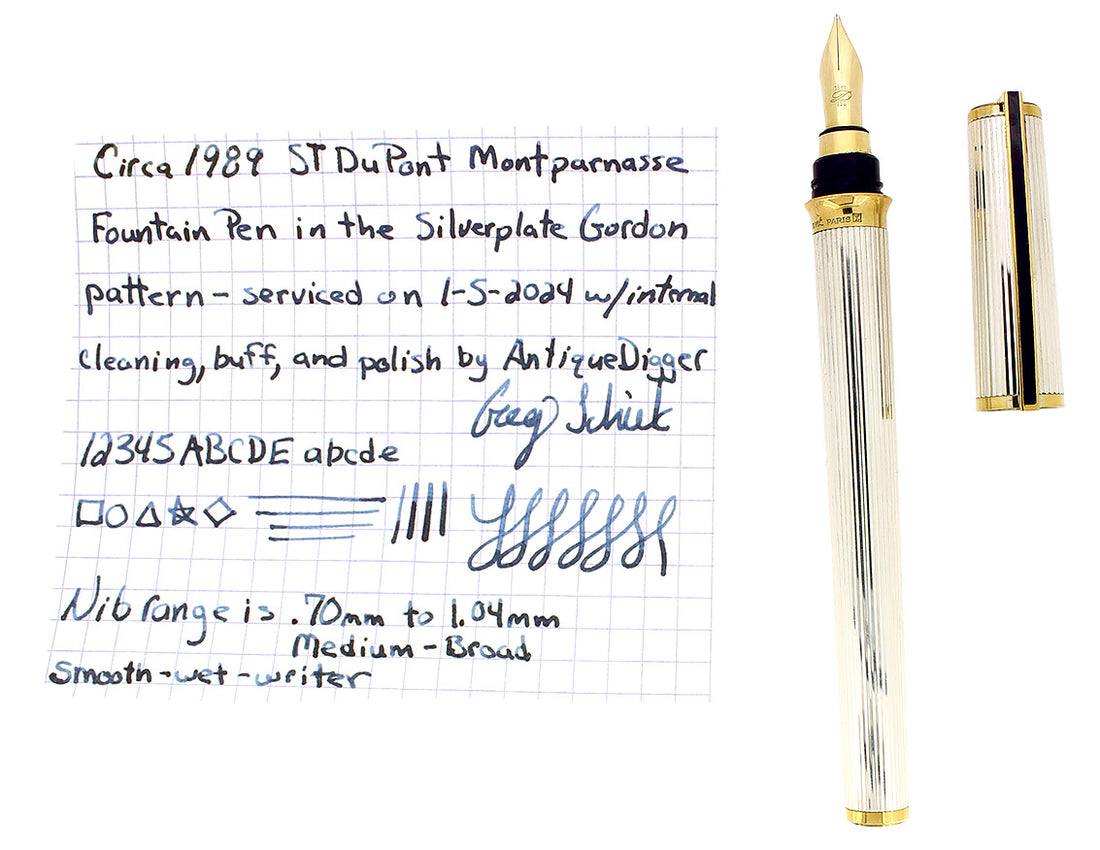 Circa 1989 ST DuPont Montparnasse
Fountain Pen in the Silverplate Gordon
pattern - serviced on 1-5-2024 w/internal
cleaning, buff, and polish by AntiqueDigger
Greg
12345 ABCDE abcde
Nib range is .70mm to 1.04mm
Medium - Broad
Smooth-wet-writer
PARIS